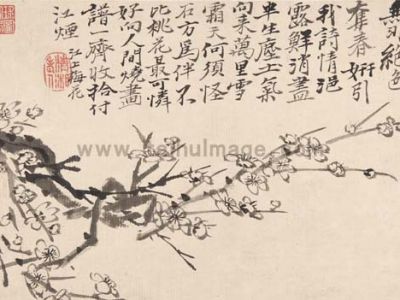 奪春妍引
我詩情浥
露鮮消盡
半生塵土氣
向來萬里雪
霜天何須怪
石方為伴不
比桃花最可憐
好向人間燒畫
譜一齊收拾付
江煙
江上梅花
www.baihuimage.com